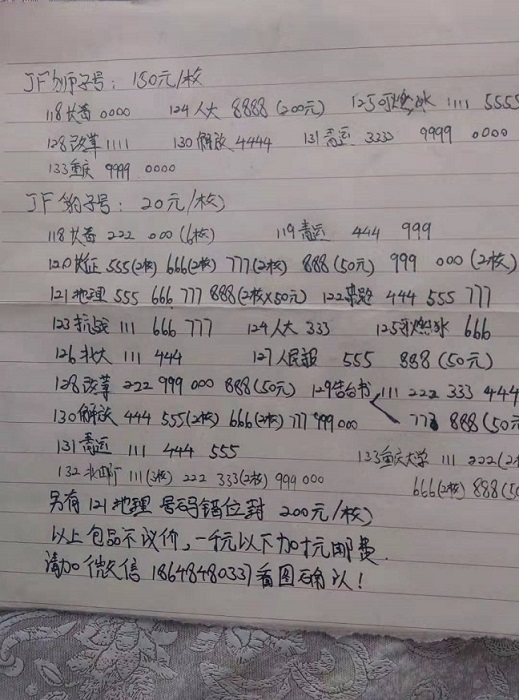 JF狮子号：150元/枚
118长春 0000 124人大 8888 (200元) 125可燃冰 1111 5555
128改革 1111 130解放 4444 131青运 3333 9999 0000
133重庆 9999 0000
JF豹子号：20元/枚
118长春 222 000 (6枚) 119青运 444 999
120长征 555(2枚) 666(2枚) 777(2枚) 888(50元) 999 000 (2枚)
121地理 555 666 777 888(2枚×50元) 122 444 555 777
123抗战 111 666 777 124人大 333 125可燃冰 666
126北大 111 444 127人民报 555 888 (50元)
128改革 222 999 000 888(50元) 129告台书 111 222 333 444
130解放 444 555(2枚) 666(2枚) 777 999 000 777 888(50元
131青运 111 444 555 133重庆大学 111 222(2枚
132 111(3枚) 222 333(2枚) 999 000 666(2枚) 888(50
另有121地理 号码错位封 200元/枚
以上包品不议价，一千元以下加十元邮费
请加微信 18648480337看图确认！